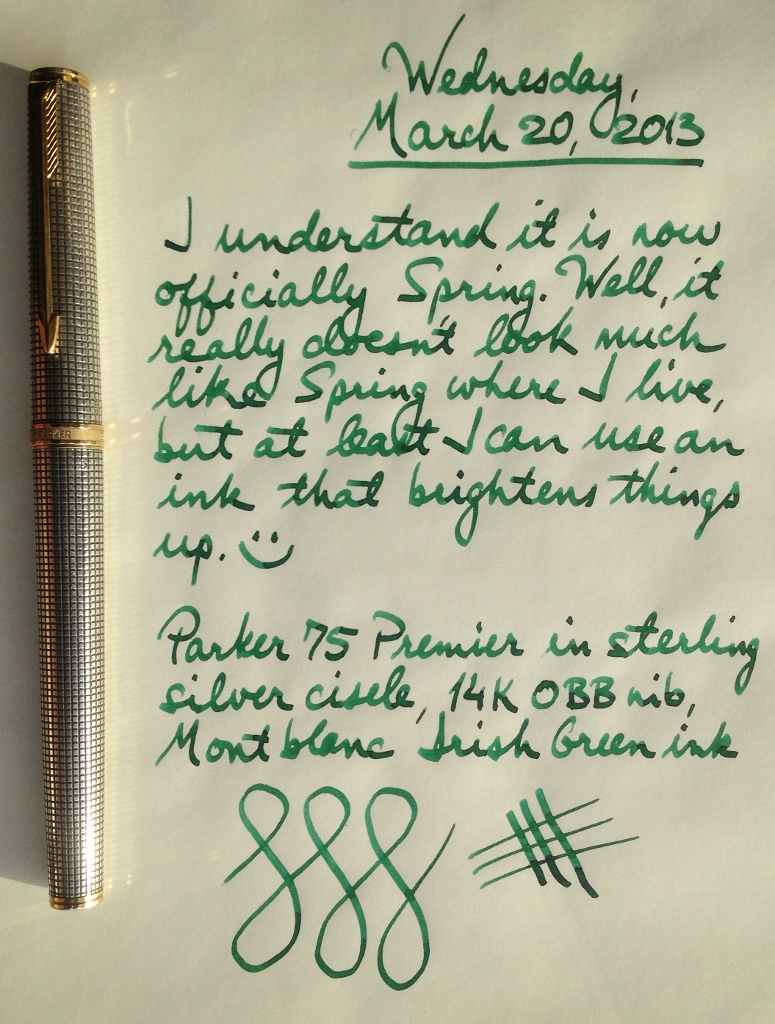 Wednesday,
March 20, 2013
I understand it is now
officially Spring. Well, it
really doesn't look much
like Spring where I live,
but at least I can use an
ink that brightens things
up. :)
Parker 75 Premier in sterling
silver cisele, 14K OBB nib,
Montblanc Irish Green ink